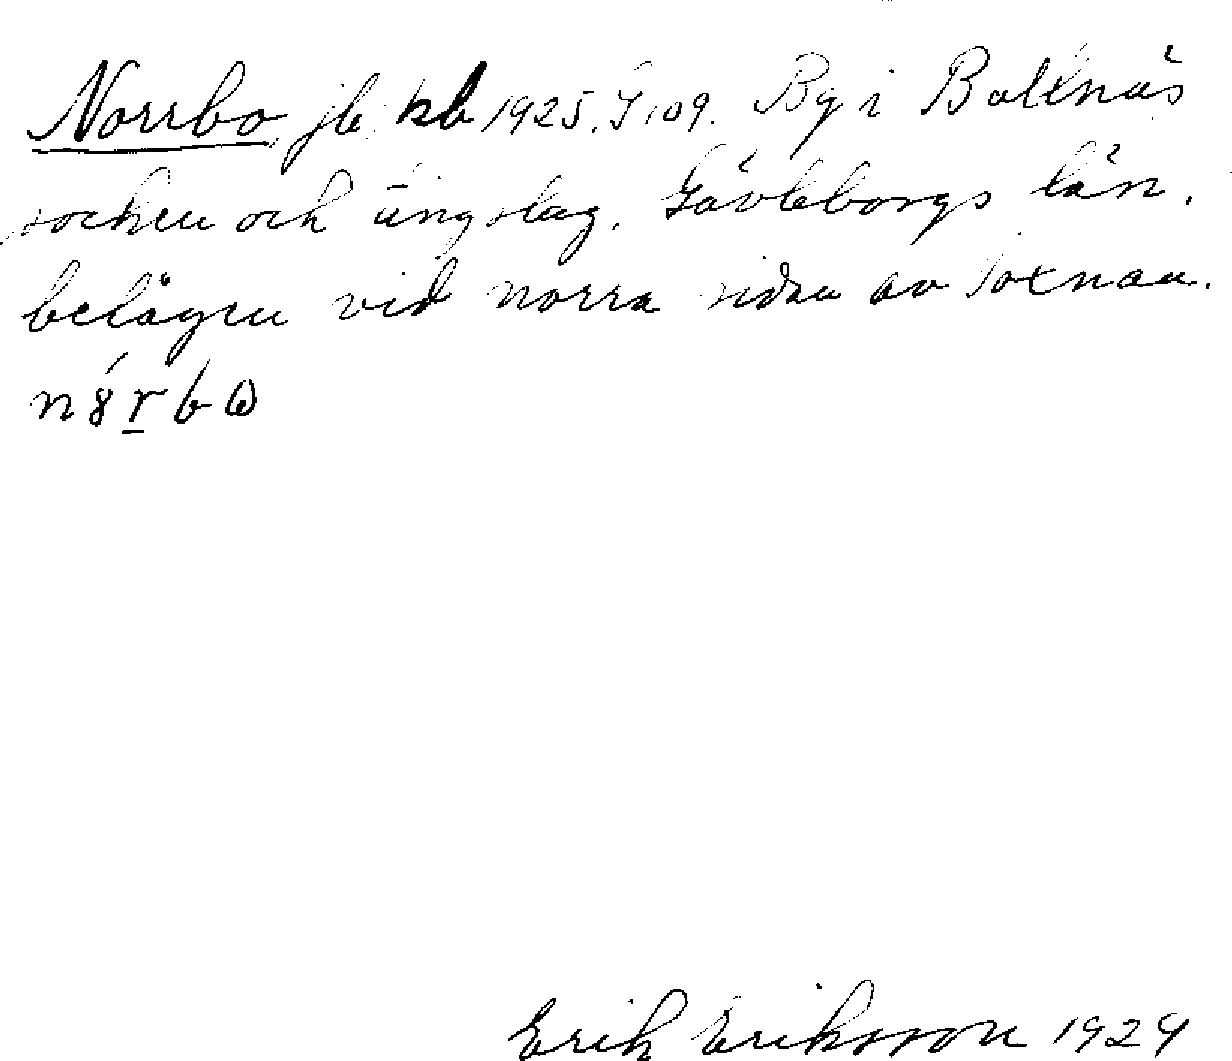 Norrbo, jb, kb 1925. S 109. By i Bollnäs
socken och tingslag, Gävleborgs län,
belägen vid norra sidan av Voxnan.
Erik Eriksson 1929